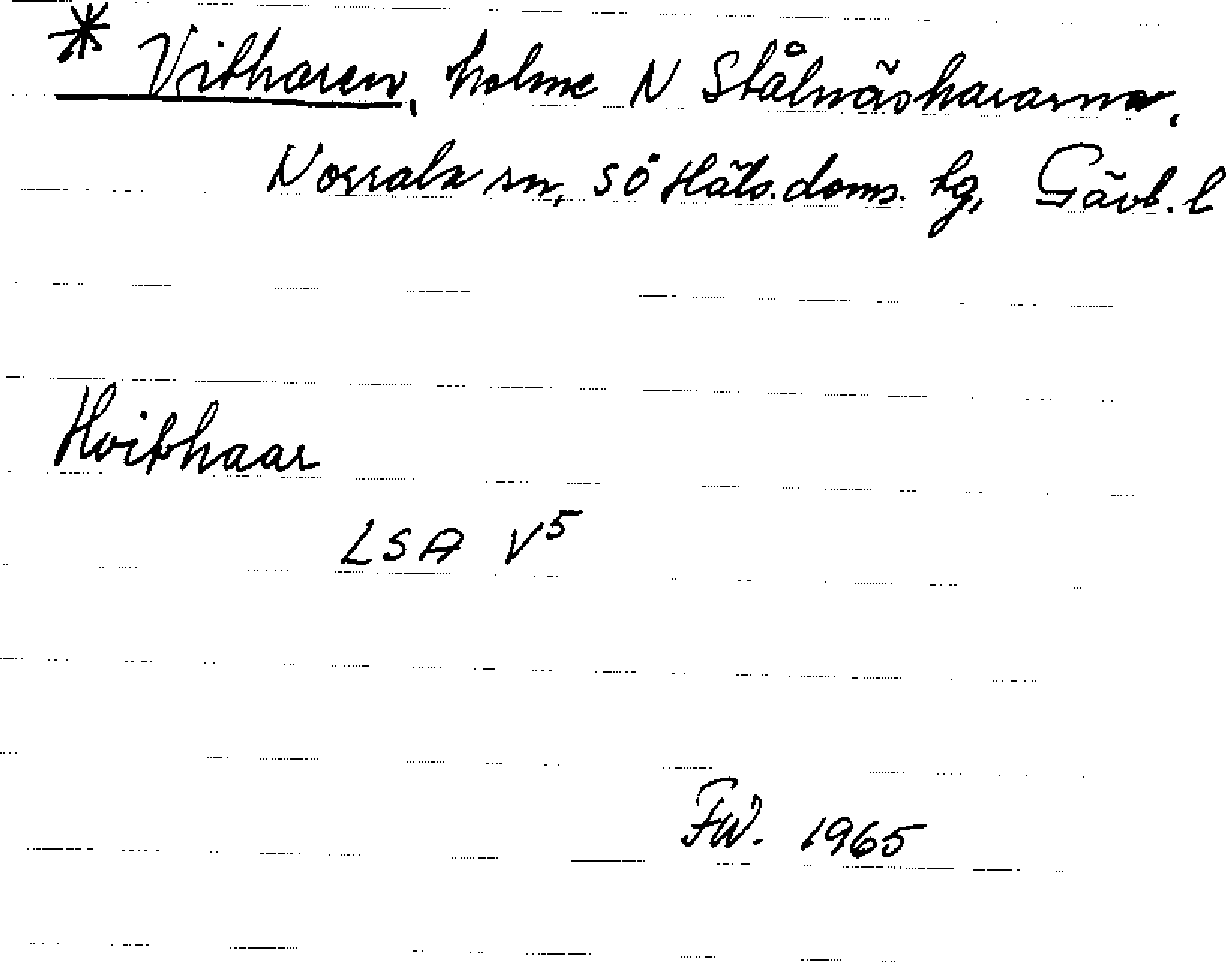 * Vitharen, holme N Stålnäshararna,
Norrala sn, SÖ Häls. doms. tg, Gävl. l
Hvithaar
LSA V5
FW. 1965